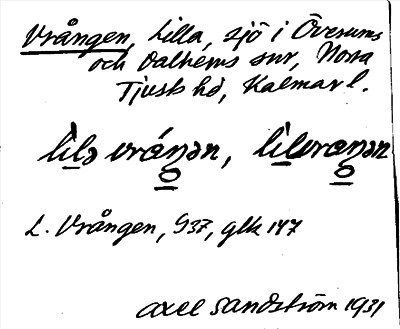 Vrången, Lilla, sjö i Överums
och Dalhems snr, Norra
Tjusts hd, Kalmar l.
lìlə vráŋən, lìlvraŋən
L. Vrången, 937, glk 147
Axel Sandström 1931